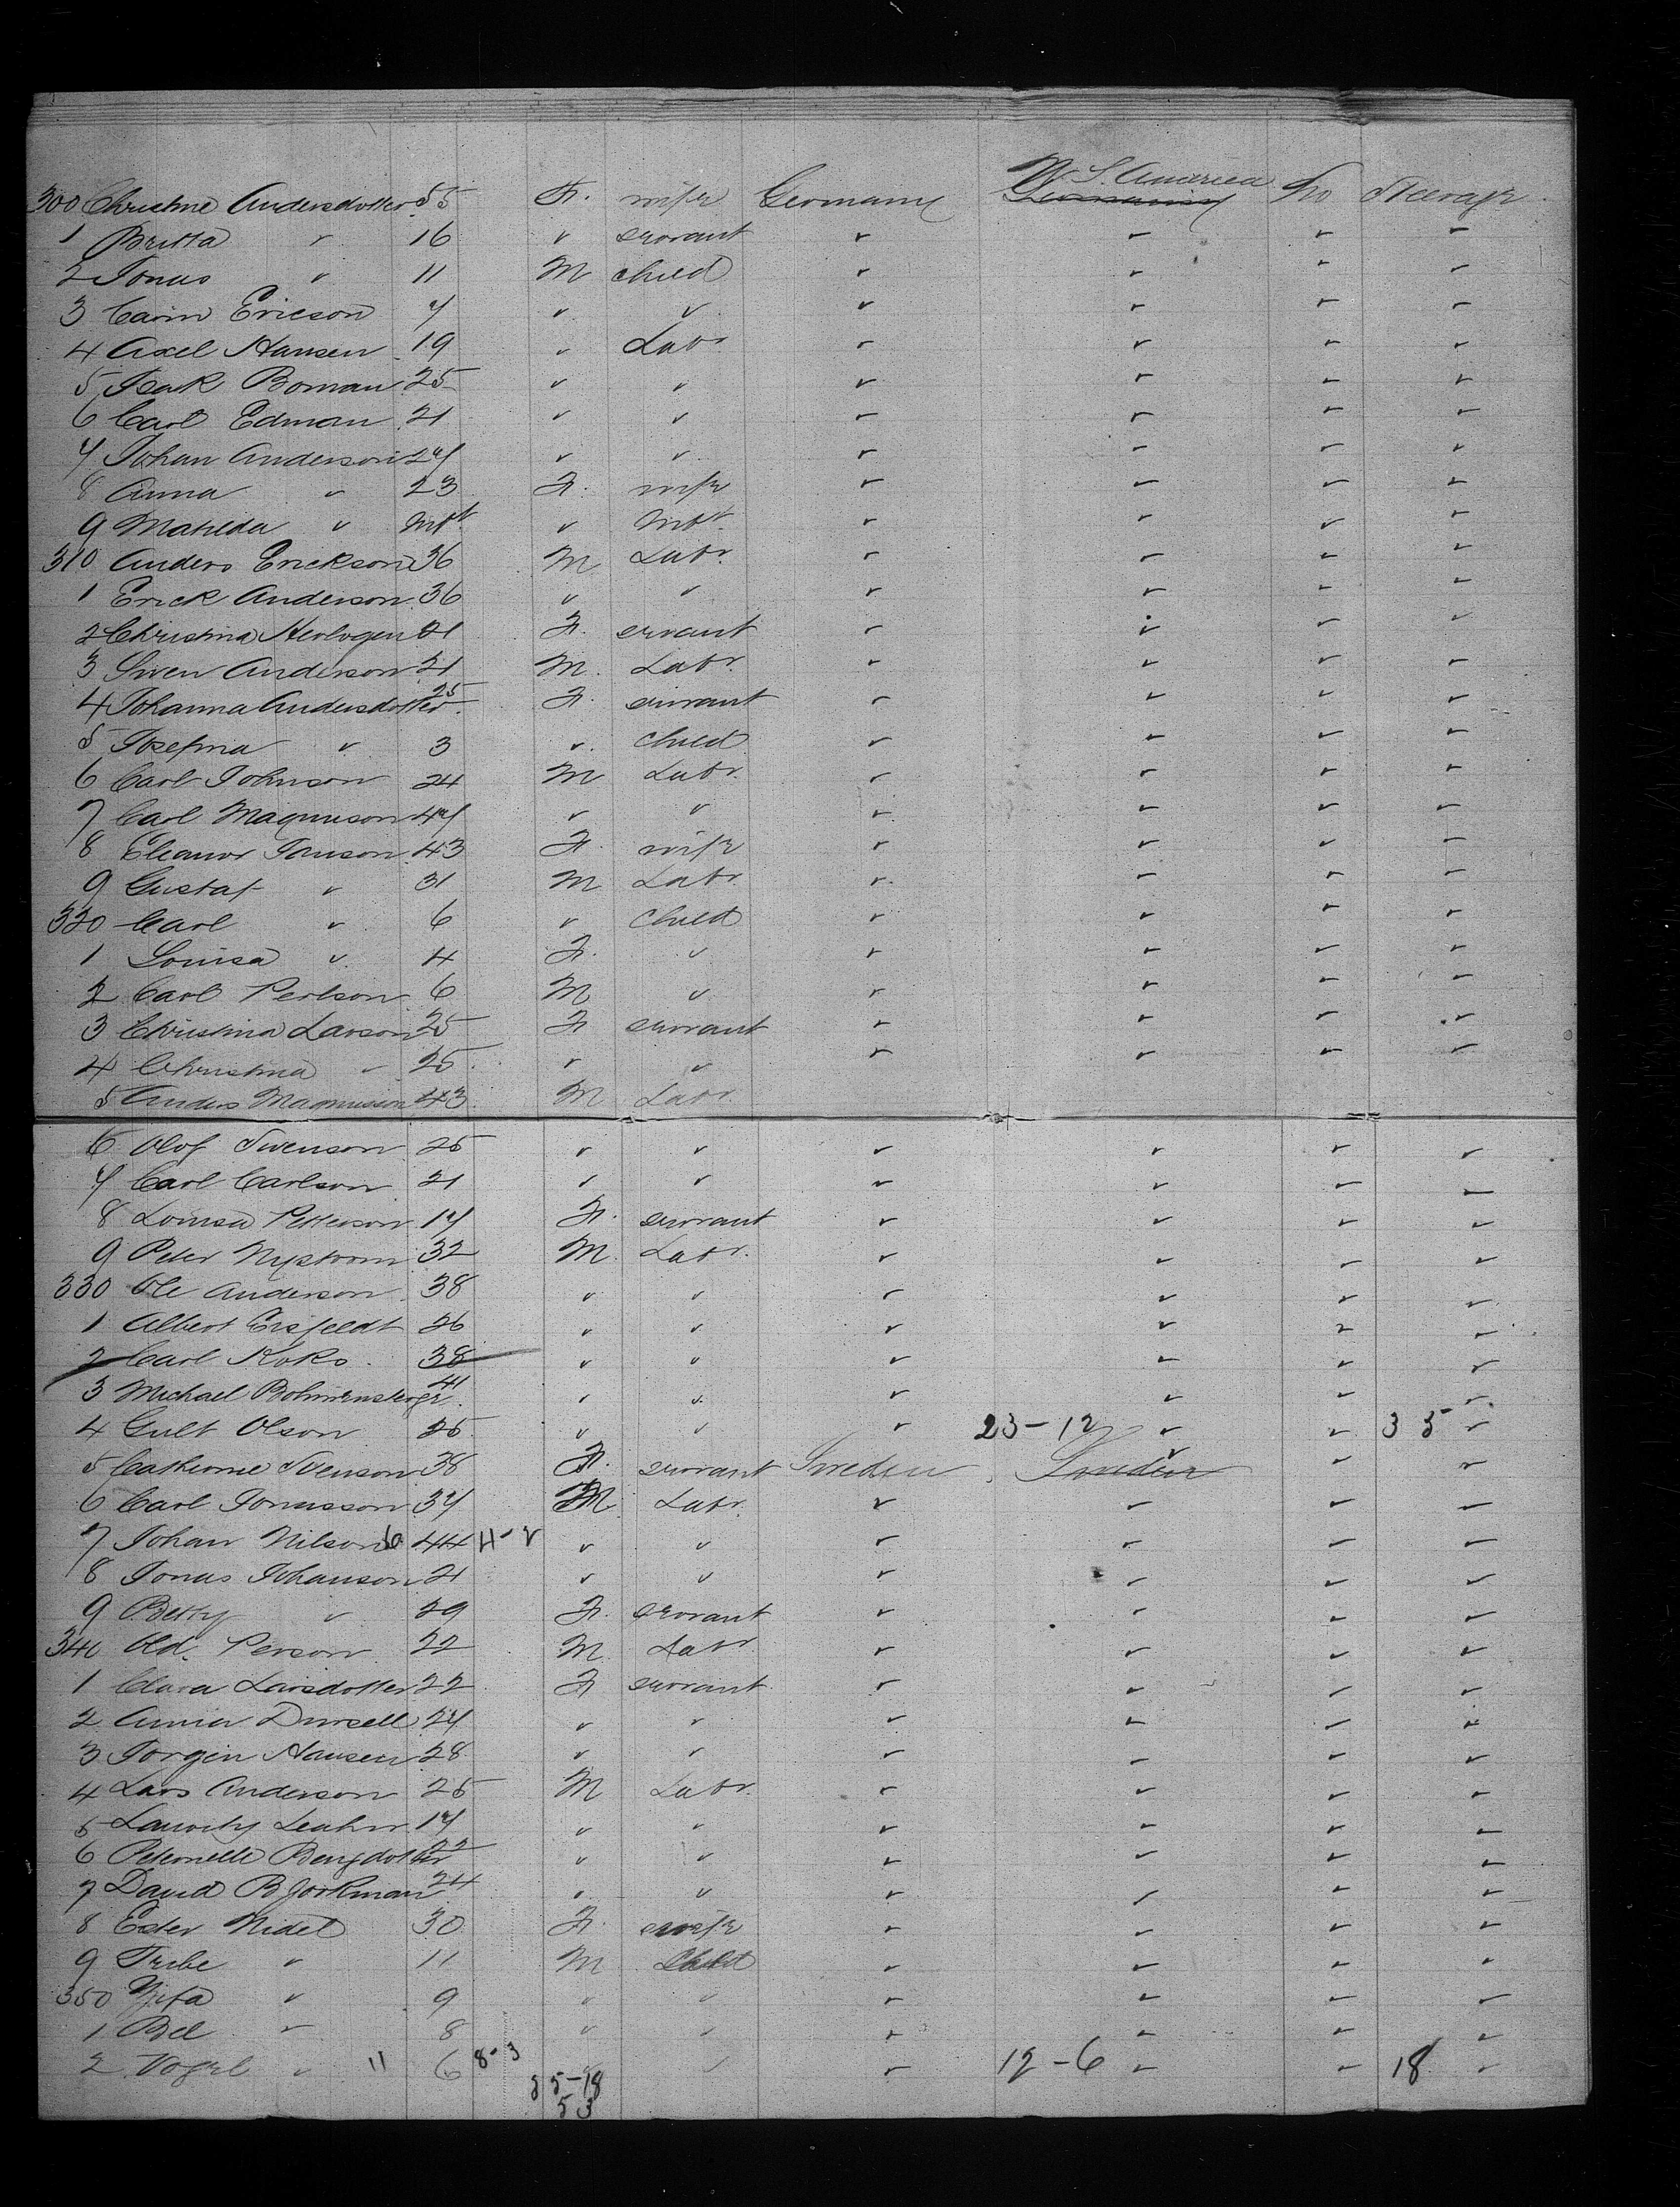 300 Christine Andersdotter 55 F. wife Germany U. S. America Germany No Steerage
1 Britta " 16 " servant " " " "
2 Jonas " 11 M child " " " "
3 Carin Ericson 7 " " " " " "
4 Axel Hansen 19 " Labr " " " "
5 Isak Boman 25 " " " " " "
6 Carl Edman 21 " " " " " "
7 Johan Anderson 27 " " " " " "
8 Anna " 23 F. wife " " " "
9 Mathilda " Inft " Inft " " " "
310 Anders Erickson 36 M Labr. " " " "
1 Erick Anderson 36 " " " " " "
2 Christina 21 F. servant " " " "
3 Swen Anderson 21 M. Labr. " " " "
4 Johanna Andersdotter 25 F. servant " " " "
5 Josefina " 3 " child " " " "
6 Carl Johnson 24 M Labr. " " " "
7 Carl Magnuson 47 " " " " " "
8 Eleanor Janson 43 F. wife " " " "
9 Gustaf " 31 M Labr " " " "
320 Carl " 6 " Child " " " "
1 Louisa " 4 F. " " " " "
2 Carl Perlson 6 M " " " " "
3 Christina Larson 25 F servant " " " "
4 Christina " 25 " " " " " "
5 Anders Magnusson 43 M Labr.
6 Olof Swenson 25 " " " " " "
7 Carl Carlson 21 " " " " " "
8 Lovisa Petterson 17 F. servant " " " "
9 Peter Nystrom 32 M. Labr. " " " "
330 Ole Anderson 38 " " " " " "
1 Albert Eisfeldt 26 " " " " " "
2 Carl Koks 38 " " " " " "
3 Michael 41 " " " " " "
4 Gult Olson 25 " " " 23-12 " " 35 "
5 Catherine Svenson 38 F. servant Sweden Sweden " " "
6 Carl Jonasson 37 M Labr. " " " "
7 Johan Nilson 44 " " " " " "
8 Jonas Johanson 21 " " " " " "
9 Betty " 29 F. servant " " " "
340 Old. Person 22 M Labr " " " "
1 Clara Larsdotter 22 F servant " " " "
2 Anna 27 " " " " " "
3 Jorgin Hansen 28 " " " " " "
4 Lars Anderson 25 M Labr. " " " "
5 17 " " " " " "
6 Peternelle Bengdotter 22 " " " " " "
7 David Bjorkman 24 " " " " " "
8 Ester Nidel 30 F. wife " " " "
9 " 11 M Child " " " "
350 " 9 " " " " " "
1 Bel " 8 " " " " " "
2 Vogel " 11 6 8-3 " " " 12-6 " " 18 "
35-18
53